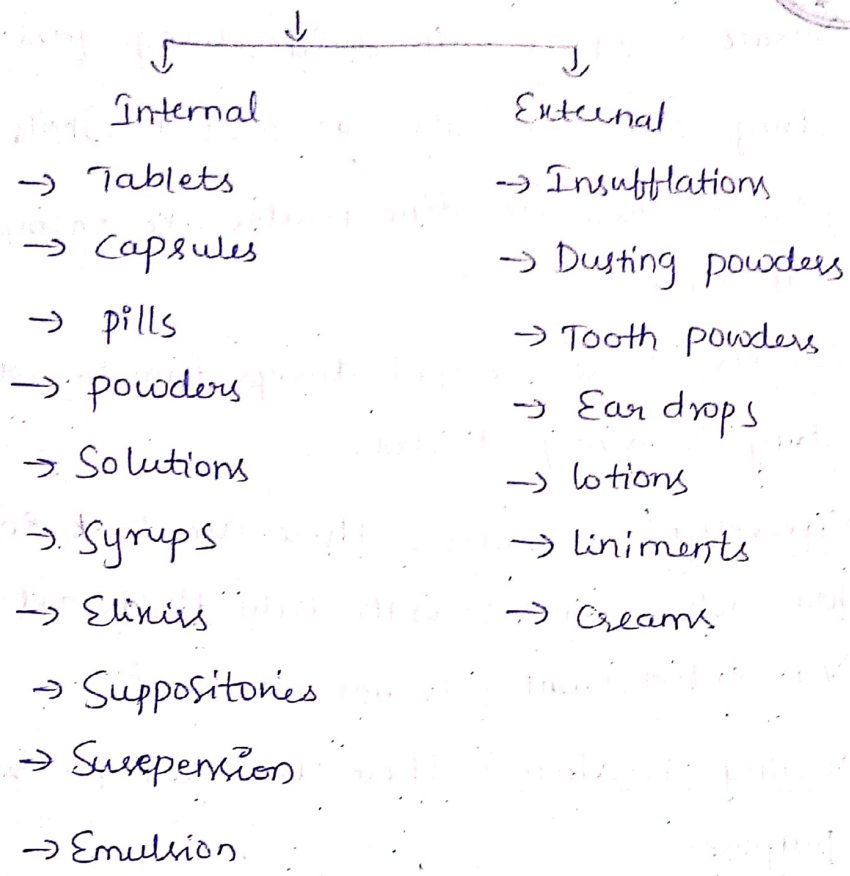 Internal
→ Tablets
→ Capsules
→ pills
→ powders
→ Solutions
→ Syrups
→ Elixirs
→ Suppositories
→ Susepension
→ Emulsion
External
→ Insufflations
→ Dusting powders
→ Tooth powders
→ Ear drops
→ lotions
→ liniments
→ Creams